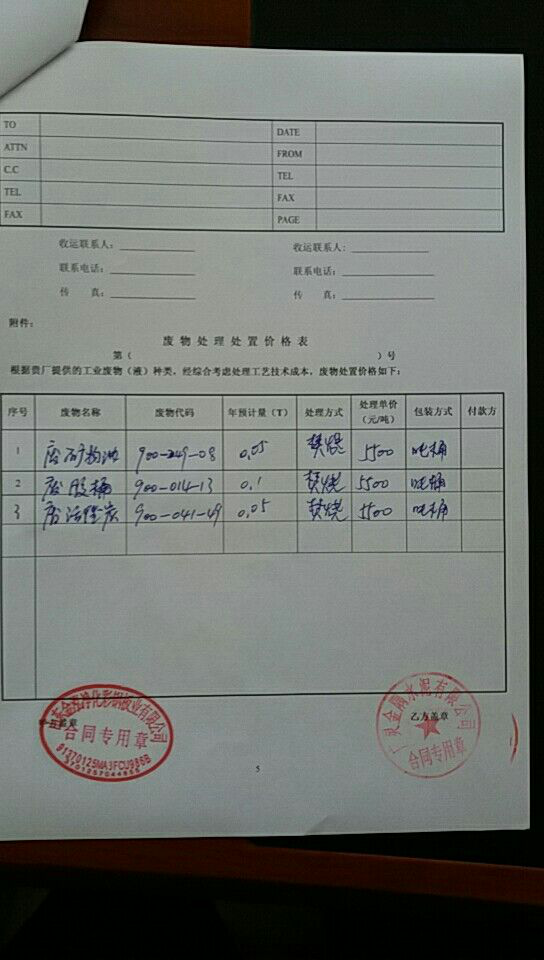 TO DATE
ATTN FROM
C.C TEL
TEL FAX
FAX PAGE
收运联系人： 收运联系人：
联系电话： 联系电话：
传 真： 传 真：
附件：
废物处理处置价格表
第（ ）号
根据贵厂提供的工业废物（液）种类，经综合考虑处理工艺技术成本，废物处置价格如下：
序号 废物名称 废物代码 年预计量（T） 处理方式 处理单价（元/吨） 包装方式 付款方
1 废矿物油 900-249-08 0.05 焚烧 5500 吨桶
2 废胶桶 900-014-13 0.1 焚烧 5500 吨桶
3 废活性炭 900-041-49 0.05 焚烧 5500 吨桶
盖章 乙方盖章
净化彩钢板业有限公司
合同专用章
91370125MA3FCU986B
水泥有限公司
合同专用章
5